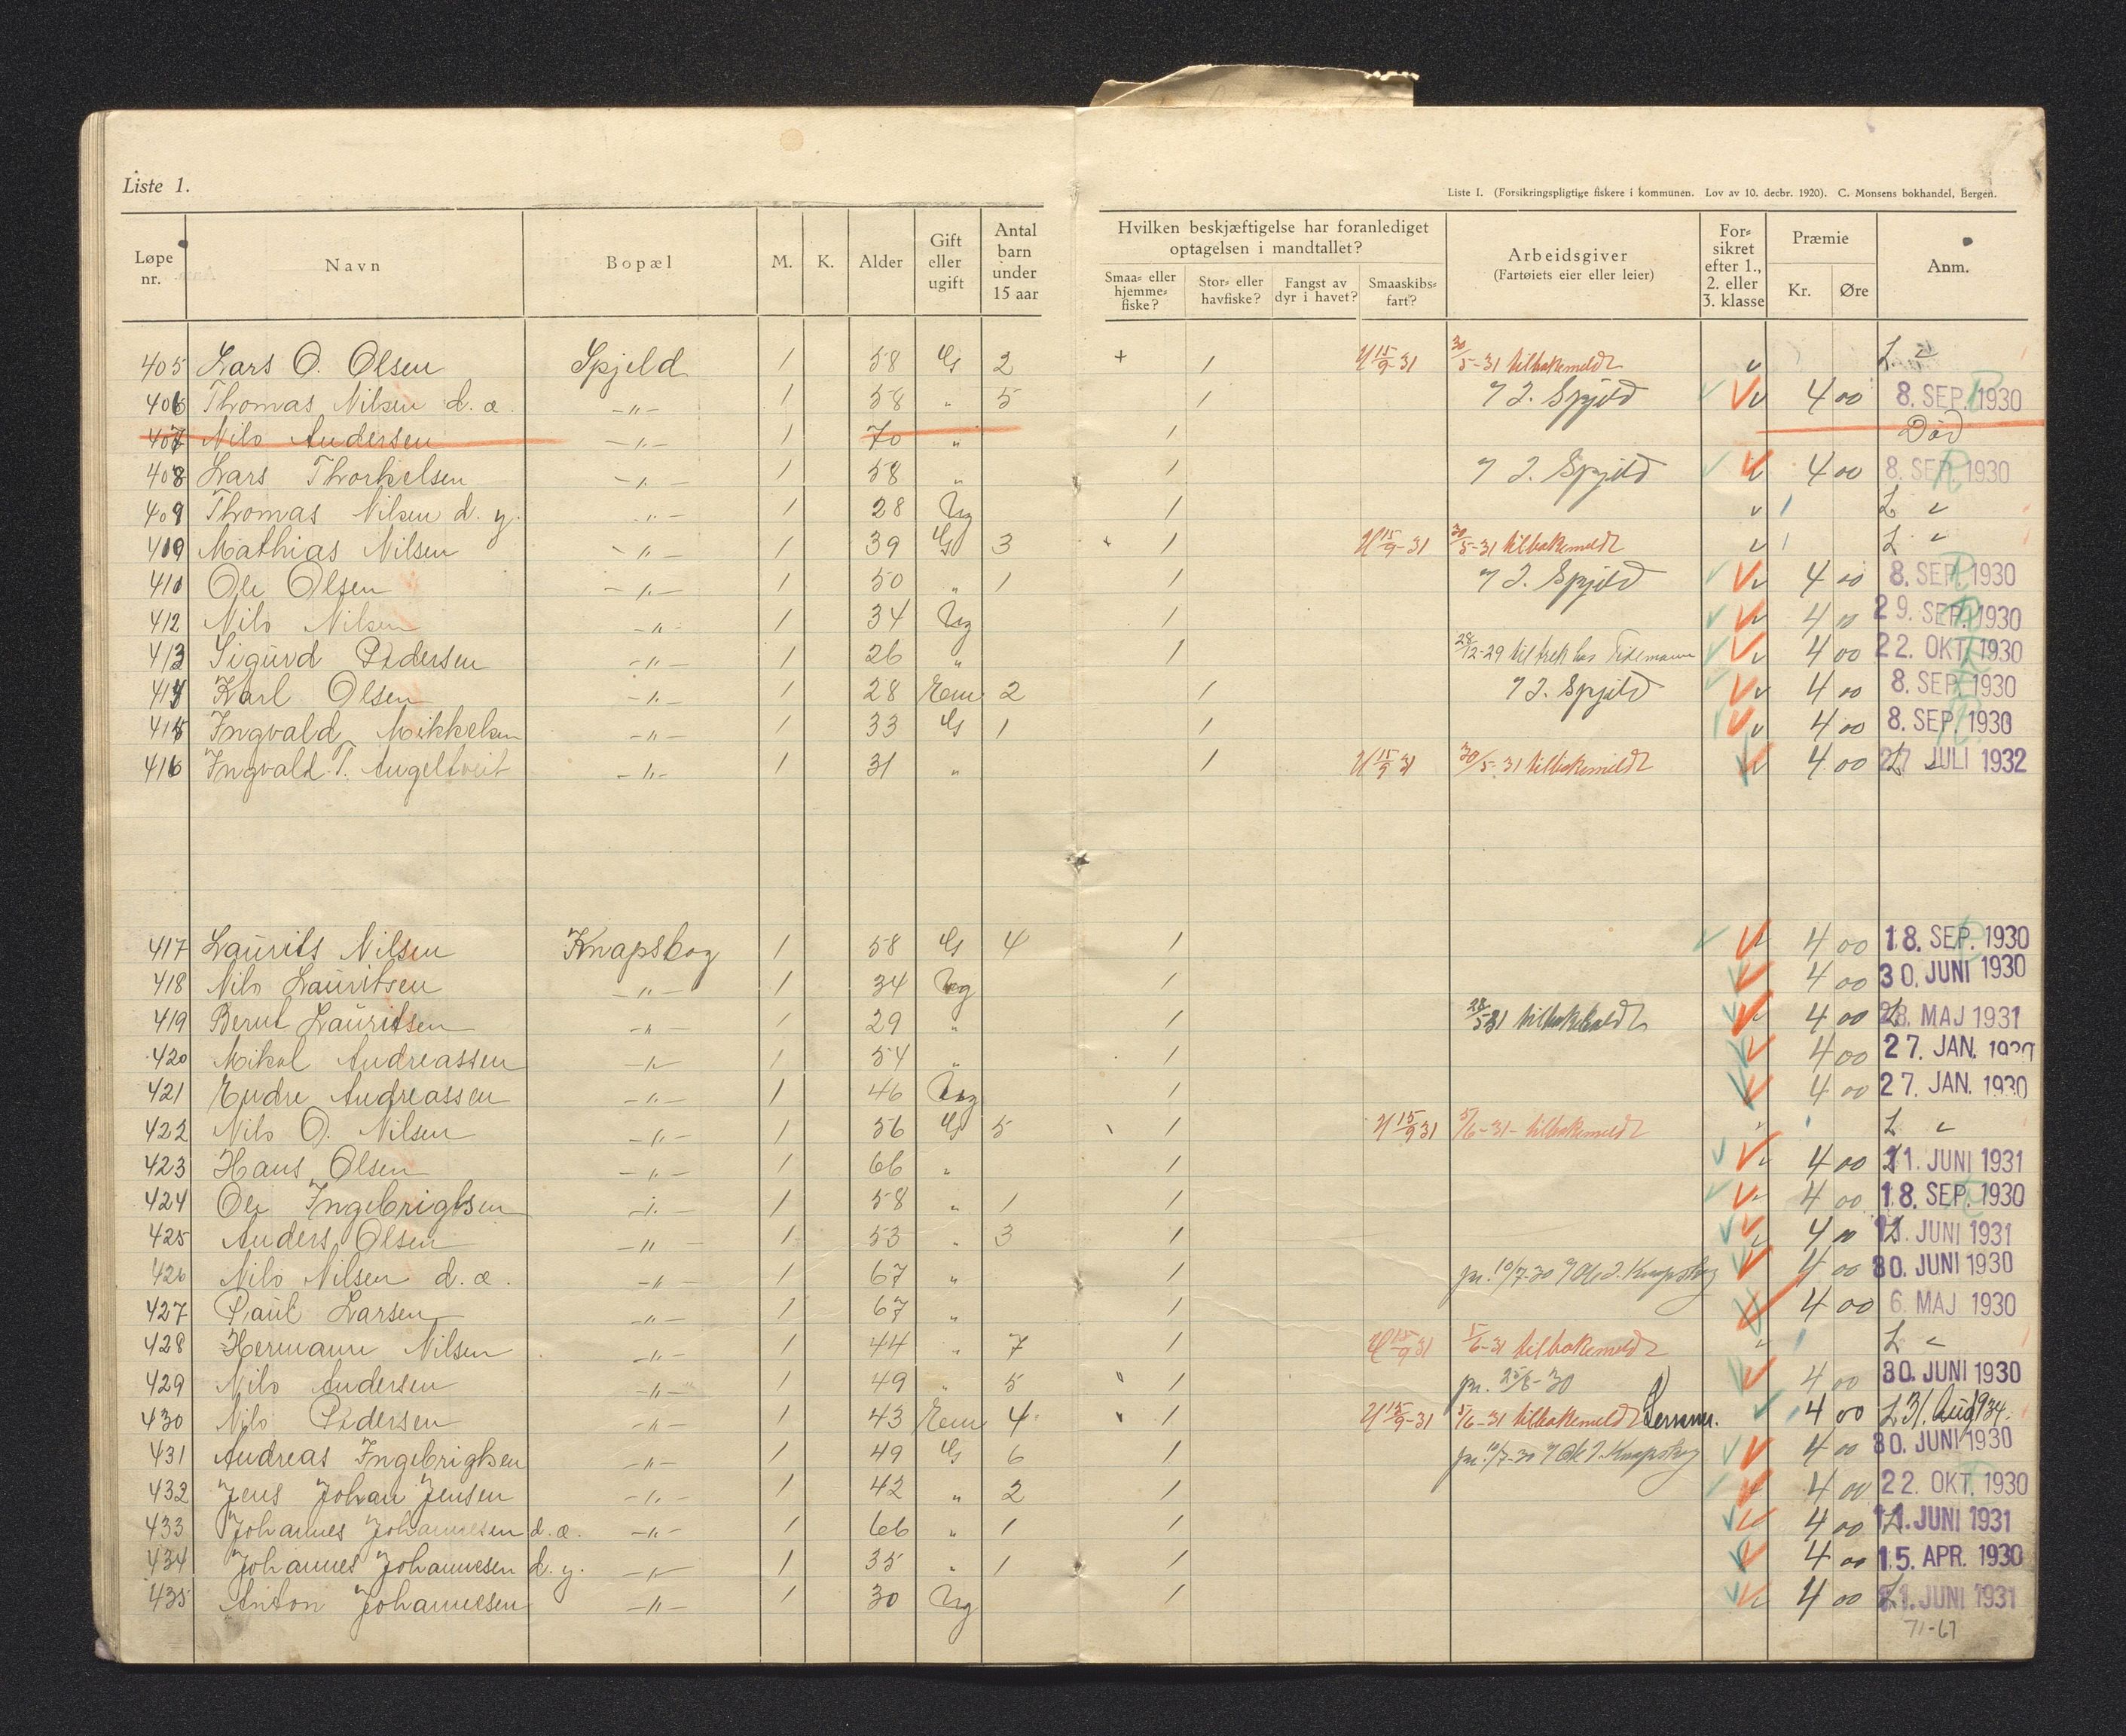 Liste 1.
Liste I. (Forsikringspligtige fiskere i kommunen. Lov av 10. decbr. 1920). C. Monsens bokhandel, Bergen.
Løpe nr. Navn Bopæl M. K. Alder Gift eller ugift Antal barn under 15 aar Hvilken beskjæftigelse har foranlediget optagelsen i mandtallet? Smaa- eller hjemmefiske? Stor- eller havfiske? Fangst av dyr i havet? Smaaskibsfart? Arbeidsgiver (Fartøiets eier eller leier) Forsikret efter 1., 2. eller 3. klasse Præmie Kr. Øre Anm.
405 Lars O. Olsen Spjeld 1 58 G 2 + 1 15/9-31 30/5-31 tilbakemeldt L
406 Thomas Nilsen d. æ. -"- 1 58 " 5 1 J. Spjeld 4 00 8. SEP. 1930
407 Nils Andersen -"- 1 70 " 1 Død
408 Lars Thorkelsen -"- 1 58 " 1 J. Spjeld 4 00 8. SEP. 1930
409 Thomas Nilsen d. y. -"- 1 28 Ug 1 L
410 Mathias Nilsen -"- 1 39 G 3 1 15/9-31 30/5-31 tilbakemeldt L
411 Ole Olsen -"- 1 50 " 1 1 J. Spjeld 4 00 8. SEP. 1930
412 Nils Nilsen -"- 1 34 Ug 1 4 00 29. SEP. 1930
413 Sigurd Pedersen -"- 1 26 " 1 28/12-29 til trek hos Tidemann 4 00 22. OKT. 1930
414 Karl Olsen -"- 1 28 Em 2 1 J. Spjeld 4 00 8. SEP. 1930
415 Ingvald Mikkelsen -"- 1 33 G 1 1 4 00 8. SEP. 1930
416 Ingvald T. Angeltveit -"- 1 31 " 1 15/9 31 30/5-31 tilbakemeldt 4 00 27 JULI 1932
417 Laurits Nilsen Knapskog 1 58 G 4 1 4 00 18. SEP. 1930
418 Nils Lauritsen -"- 1 34 Ug 1 4 00 30. JUNI 1930
419 Bernt Lauritsen -"- 1 29 " 1 28/5 31 4 00 28. MAJ 1931
420 Mikal Andreassen -"- 1 54 " 1 4 00 27. JAN. 1930
421 Endre Andreassen -"- 1 46 Ug 1 4 00 27. JAN. 1930
422 Nils O. Nilsen -"- 1 56 G 5 1 15/9 31 5/6-31 - tilbakemeldt L
423 Hans Olsen -"- 1 66 " 1 4 00 11. JUNI 1931
424 Ole Ingebrigtsen -"- 1 58 " 1 1 4 00 18. SEP. 1930
425 Anders Olsen -"- 1 53 " 3 1 4 00 11. JUNI 1931
426 Nils Nilsen d. æ. -"- 1 67 " 1 pr. 10/7-30 Ole J. Knapskog 4 00 30. JUNI 1930
427 Paul Larsen -"- 1 67 " 1 4 00 6. MAJ 1930
428 Hermann Nilsen -"- 1 44 " 7 1 15/9 31 5/6-31 tilbakemeldt L
429 Nils Andersen -"- 1 49 " 5 1 pr. 25/8-30 4 00 30. JUNI 1930
430 Nils Pedersen -"- 1 43 Em 4 1 15/9-31 5/6-31 tilbakemeldt 4 00 L 31. Aug 1934.
431 Andreas Ingebrigtsen -"- 1 49 G 6 1 pr. 10/7-30 Ole J. Knapskog 4 00 30. JUNI 1930
432 Jens Johan Jensen -"- 1 42 " 2 1 4 00 22. OKT. 1930
433 Johannes Johannesen d. æ. -"- 1 66 " 1 1 4 00 11. JUNI 1931
434 Johannes Johannesen d. y. -"- 1 35 " 1 1 4 00 15. APR. 1930
435 Anton Johannesen -"- 1 30 Ug 1 4 00 11. JUNI 1931
71-67